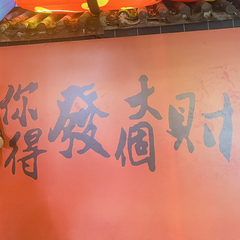 你得發大個財